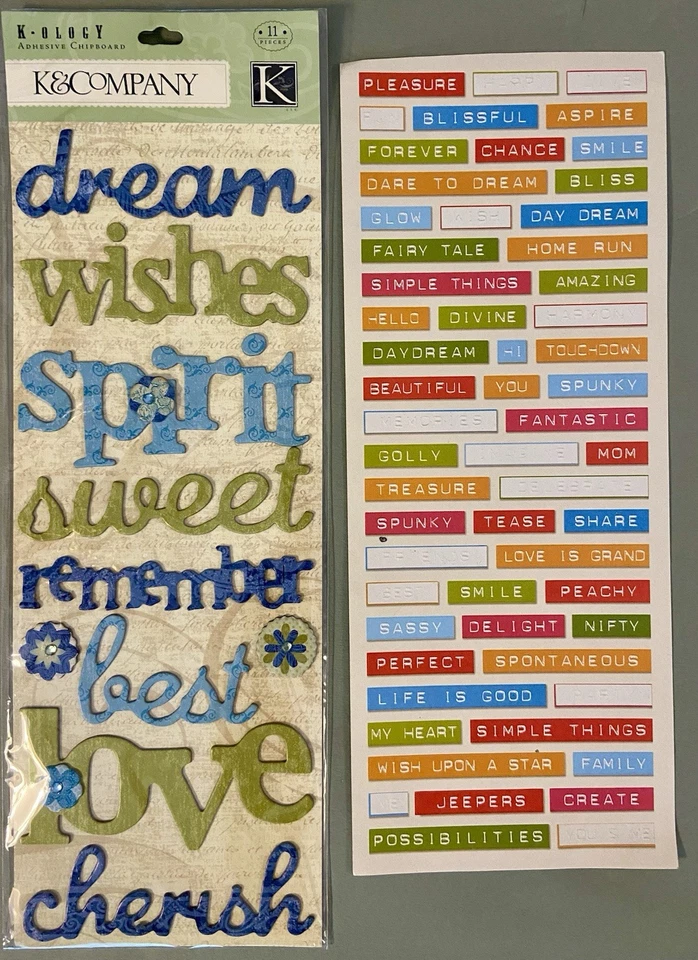 K-OLOGY
ADHESIVE CHIPBOARD
11
PIECES
K&COMPANY
K
dream
wishes
spirit
sweet
remember
best
love
cherish
PLEASURE
BLISSFUL ASPIRE
FOREVER CHANCE SMILE
DARE TO DREAM BLISS
GLOW WISH DAY DREAM
FAIRY TALE HOME RUN
SIMPLE THINGS AMAZING
HELLO DIVINE HARMONY
DAYDREAM HI TOUCHDOWN
BEAUTIFUL YOU SPUNKY
MEMORIES FANTASTIC
GOLLY MOM
TREASURE
SPUNKY TEASE SHARE
FRIENDS LOVE IS GRAND
BEST SMILE PEACHY
SASSY DELIGHT NIFTY
PERFECT SPONTANEOUS
LIFE IS GOOD
MY HEART SIMPLE THINGS
WISH UPON A STAR FAMILY
JEEPERS CREATE
POSSIBILITIES